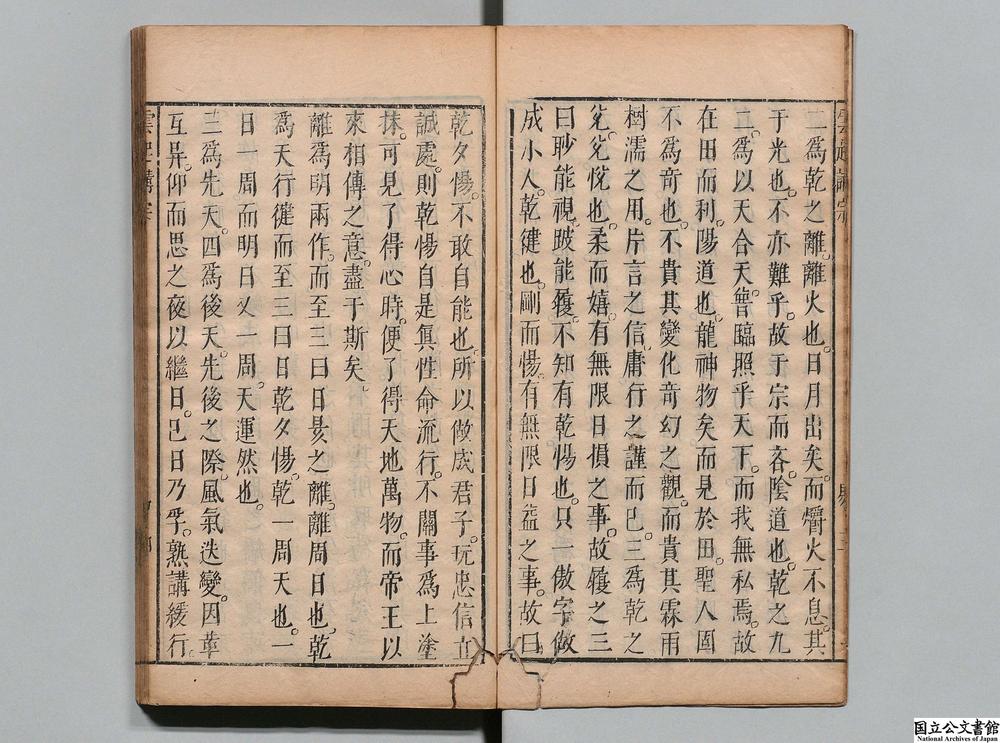 二爲乾之離離火也日月出矣而爝火不息其
于光也不亦難乎故于宗而吝陰道也乾之九
二爲以天合天嘗臨照乎天下而我無私焉故
在田而利陽道也龍神物矣而見於田聖人固
不爲竒也不貴其變化竒幻之觀而貴其霖雨
樹濡之用片言之信庸行之謹而已三爲乾之
兊兊悅也柔而嬉有無限日損之事故履之三
曰眇能視跛能履不知有乾惕也只一傲字做
成小人乾健也剛而惕有無限日益之事故曰
乾夕惕不敢自能也所以做成君子玩忠信立
誠處則乾惕自是眞性命流行不關事爲上塗
抹可見了得心時便了得天地萬物而帝王以
來相傳之意盡于斯矣
離爲明兩作而至三曰日昃之離離周日也乾
爲天行健而至三曰日乾夕惕乾一周天也一
日一周而明日又一周天運然也
三爲先天四爲後天先後之際風氣迭變因革
互異仰而思之夜以繼日巳日乃孚熟講緩行
雲起講宗
国立公文書館
National Archives of Japan